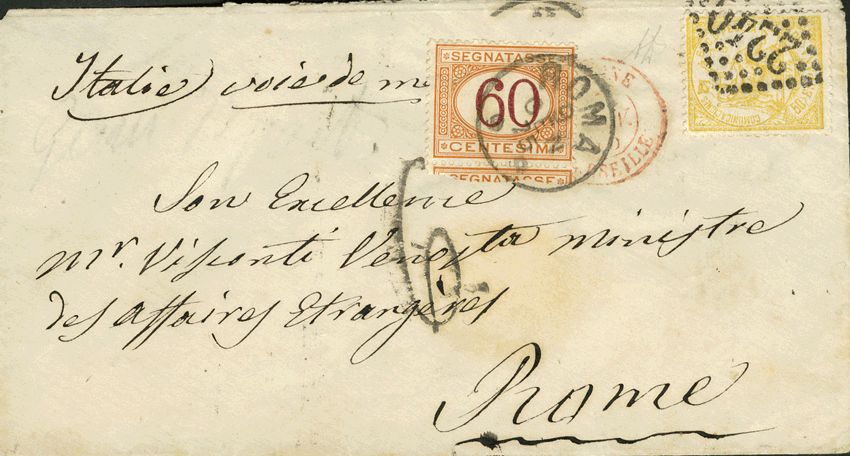 Italie voie de m
SEGNATASSE
60
CENTESIMI
SEGNATASSE
ROMA
SEILLE
2240
COMUNICACIONES
Son Excellence
Mr. Visconti Venosta ministre
des affaires Etrangères
Rome